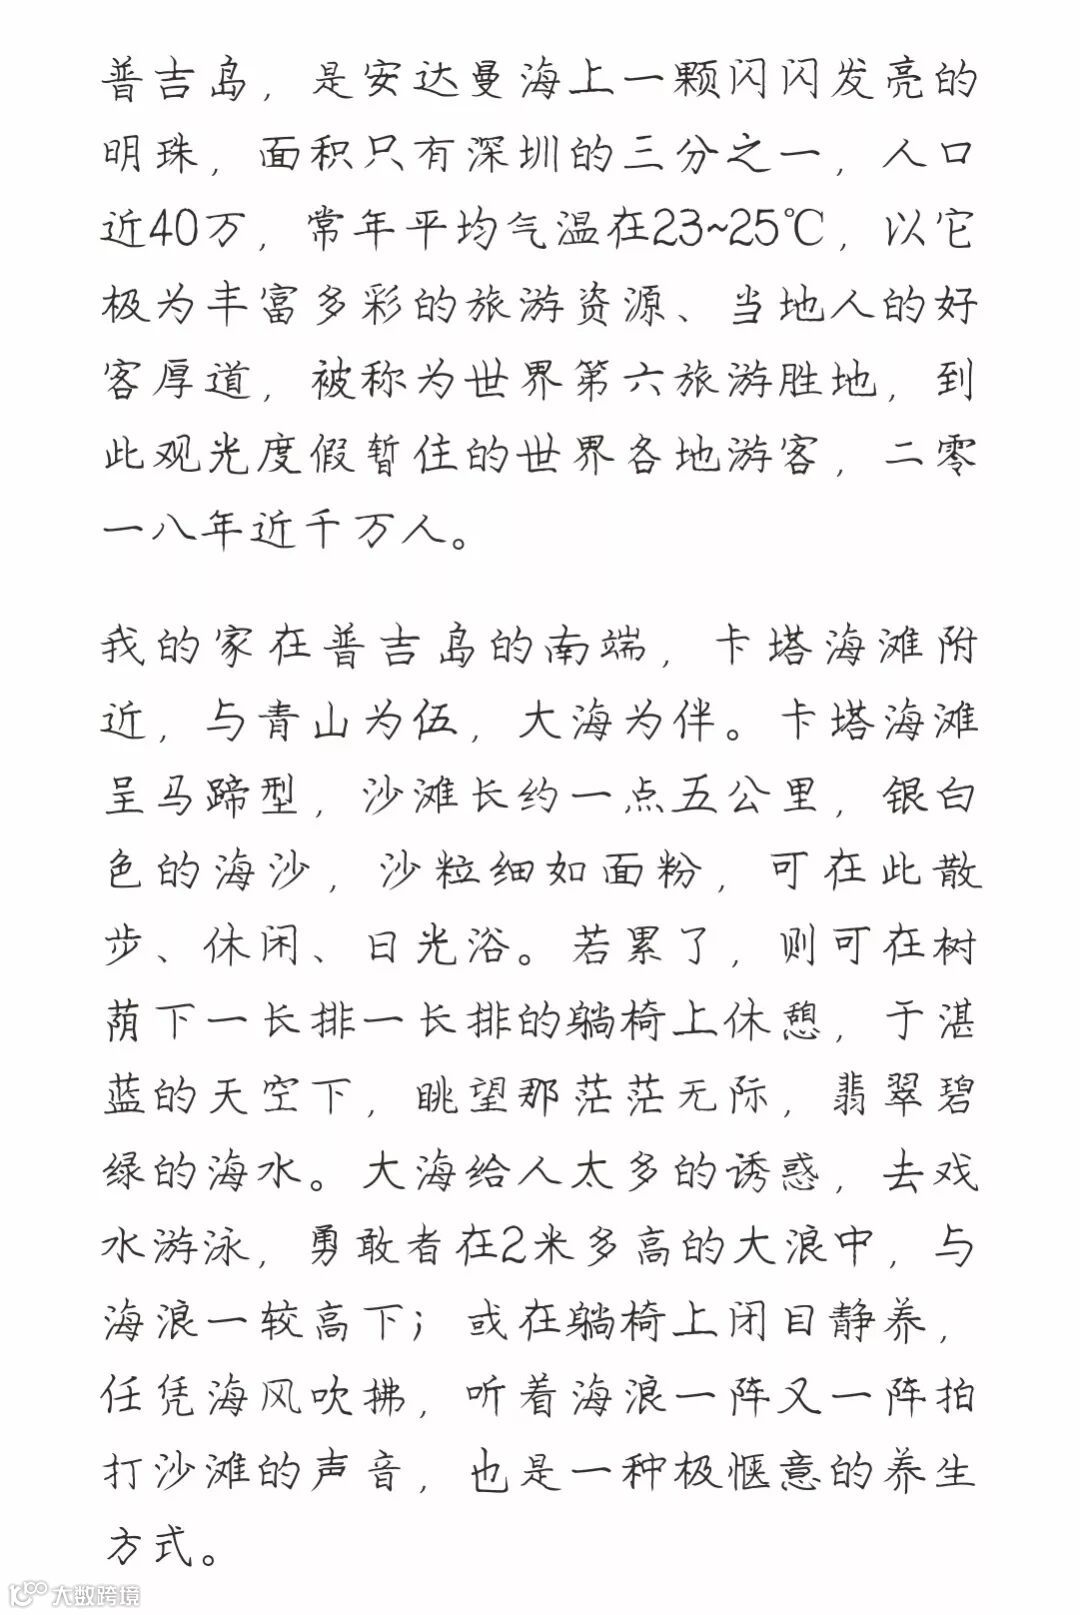 普吉岛，是安达曼海上一颗闪闪发亮的
明珠，面积只有深圳的三分之一，人口
近40万，常年平均气温在23~25℃，以它
极为丰富多彩的旅游资源、当地人的好
客厚道，被称为世界第六旅游胜地，到
此观光度假暂住的世界各地游客，二零
一八年近千万人。
我的家在普吉岛的南端，卡塔海滩附
近，与青山为伍，大海为伴。卡塔海滩
呈马蹄型，沙滩长约一点五公里，银白
色的海沙，沙粒细如面粉，可在此散
步、休闲、日光浴。若累了，则可在树
荫下一长排一长排的躺椅上休憩，于湛
蓝的天空下，眺望那茫茫无际，翡翠碧
绿的海水。大海给人太多的诱惑，去戏
水游泳，勇敢者在2米多高的大浪中，与
海浪一较高下；或在躺椅上闭目静养，
任凭海风吹拂，听着海浪一阵又一阵拍
打沙滩的声音，也是一种极惬意的养生
方式。
大数跨境